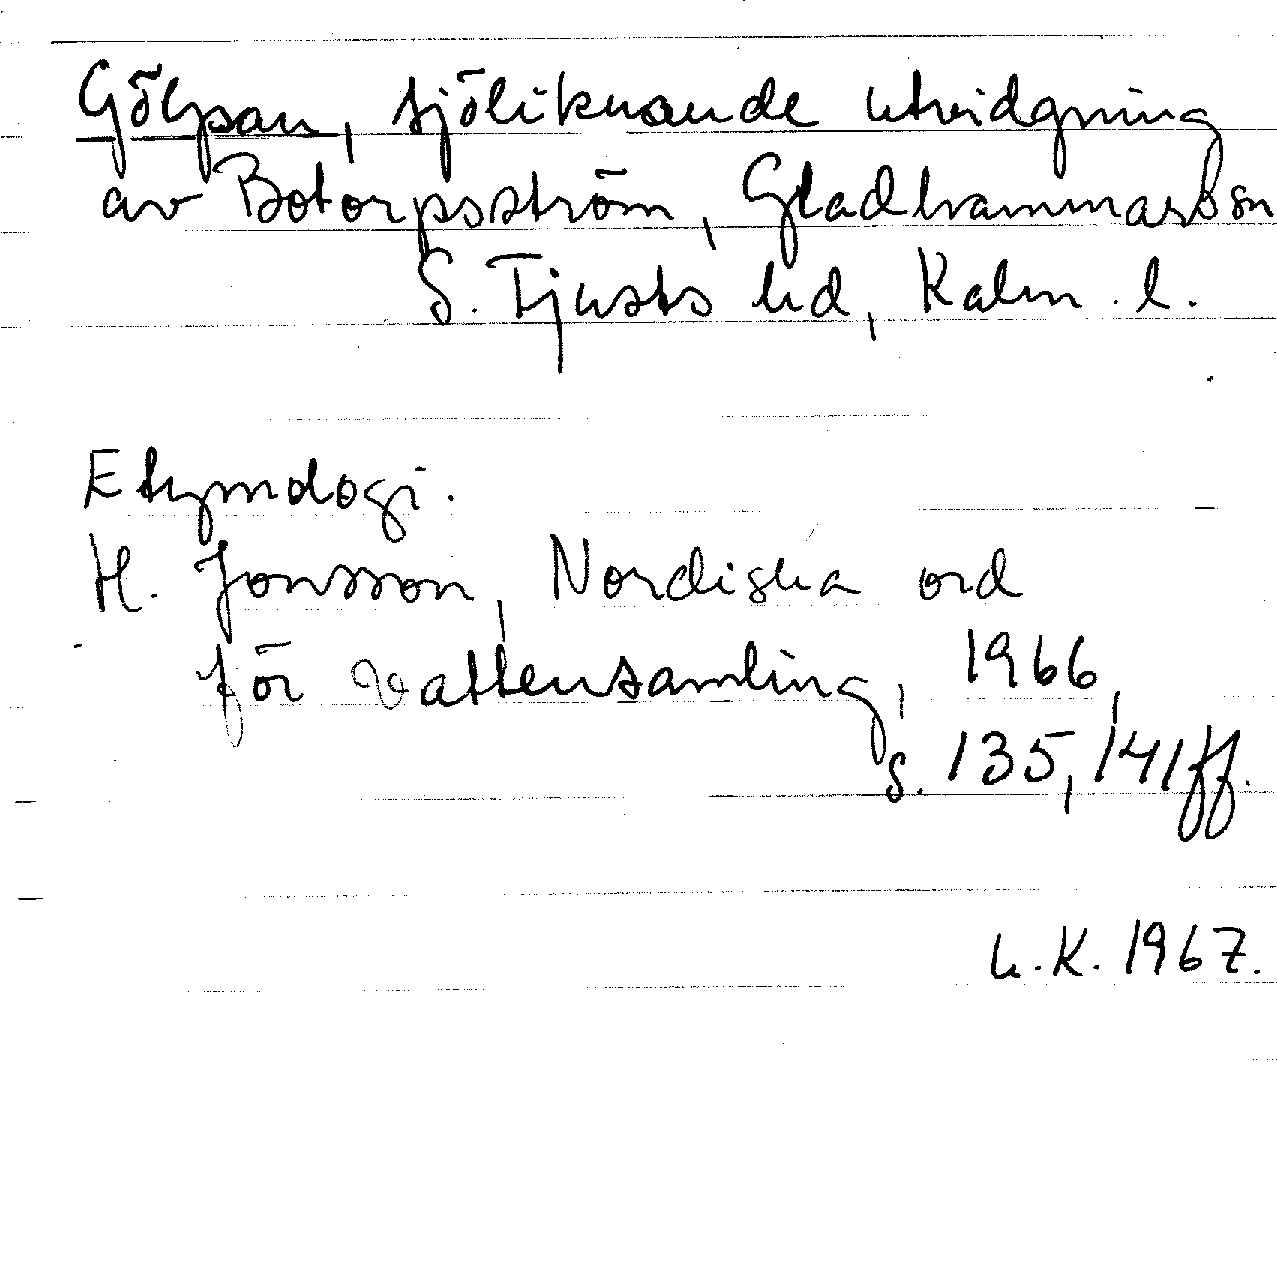 Gölpan, sjöliknande utvidgning
av Botorpsström, Gladhammars sn
S. Tjusts hd, Kalm. l.
Etymologi.
H. Jonsson, Nordiska ord
för vattensamling, 1966,
s. 135, 141 ff.
L.K. 1967.